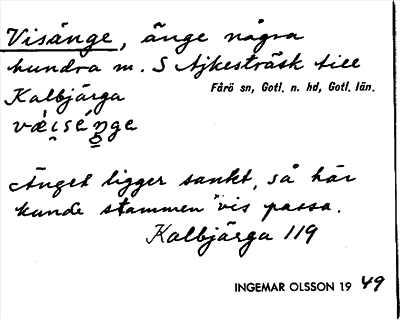 Visänge, änge några
hundra m. S Ajkesträsk till
Kalbjärga
Fårö sn, Gotl. n. hd, Gotl. län.
Änget ligger sankt, så här
kunde stammen "vis passa.
Kalbjärga 119
INGEMAR OLSSON 19 49